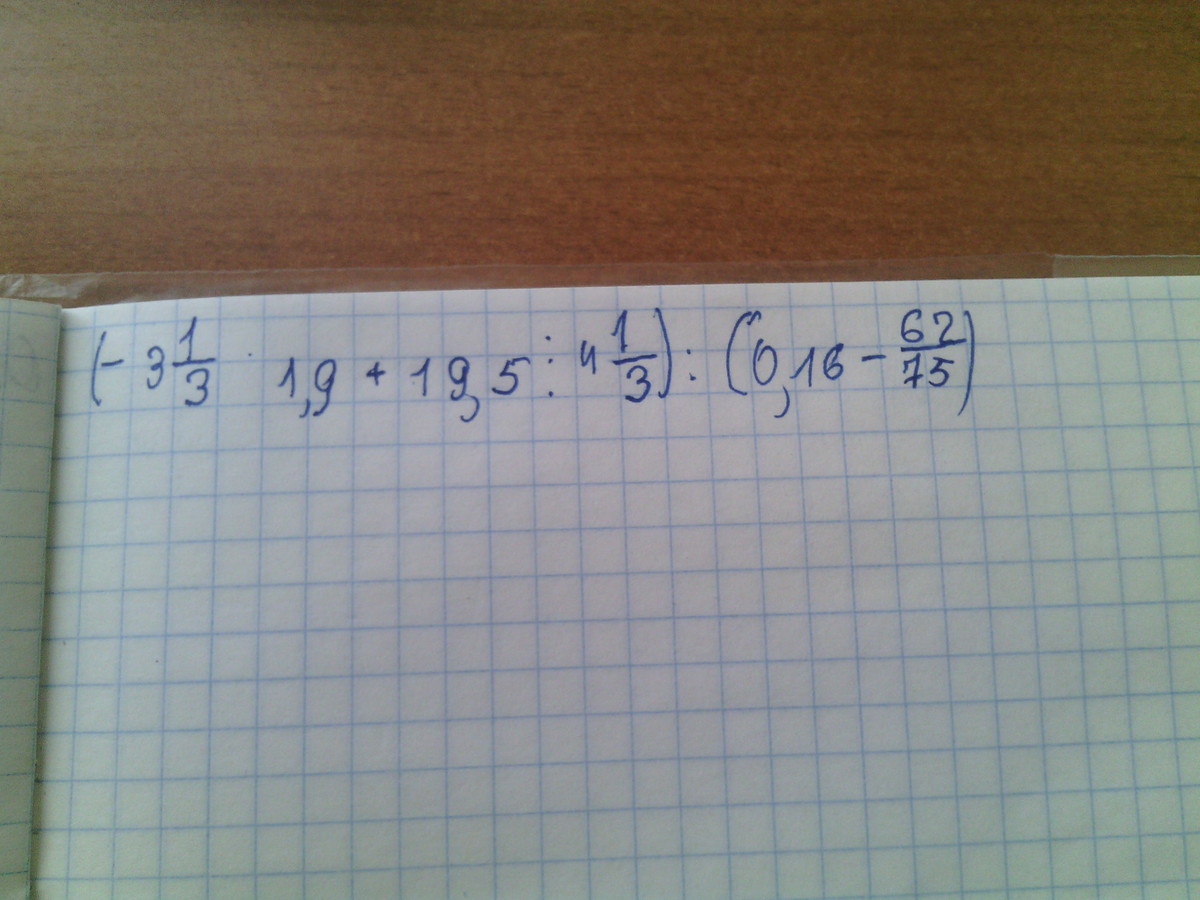 (- 3 1/3 · 1,9 + 19,5 : 4 1/3) : (0,16 - 62/75)